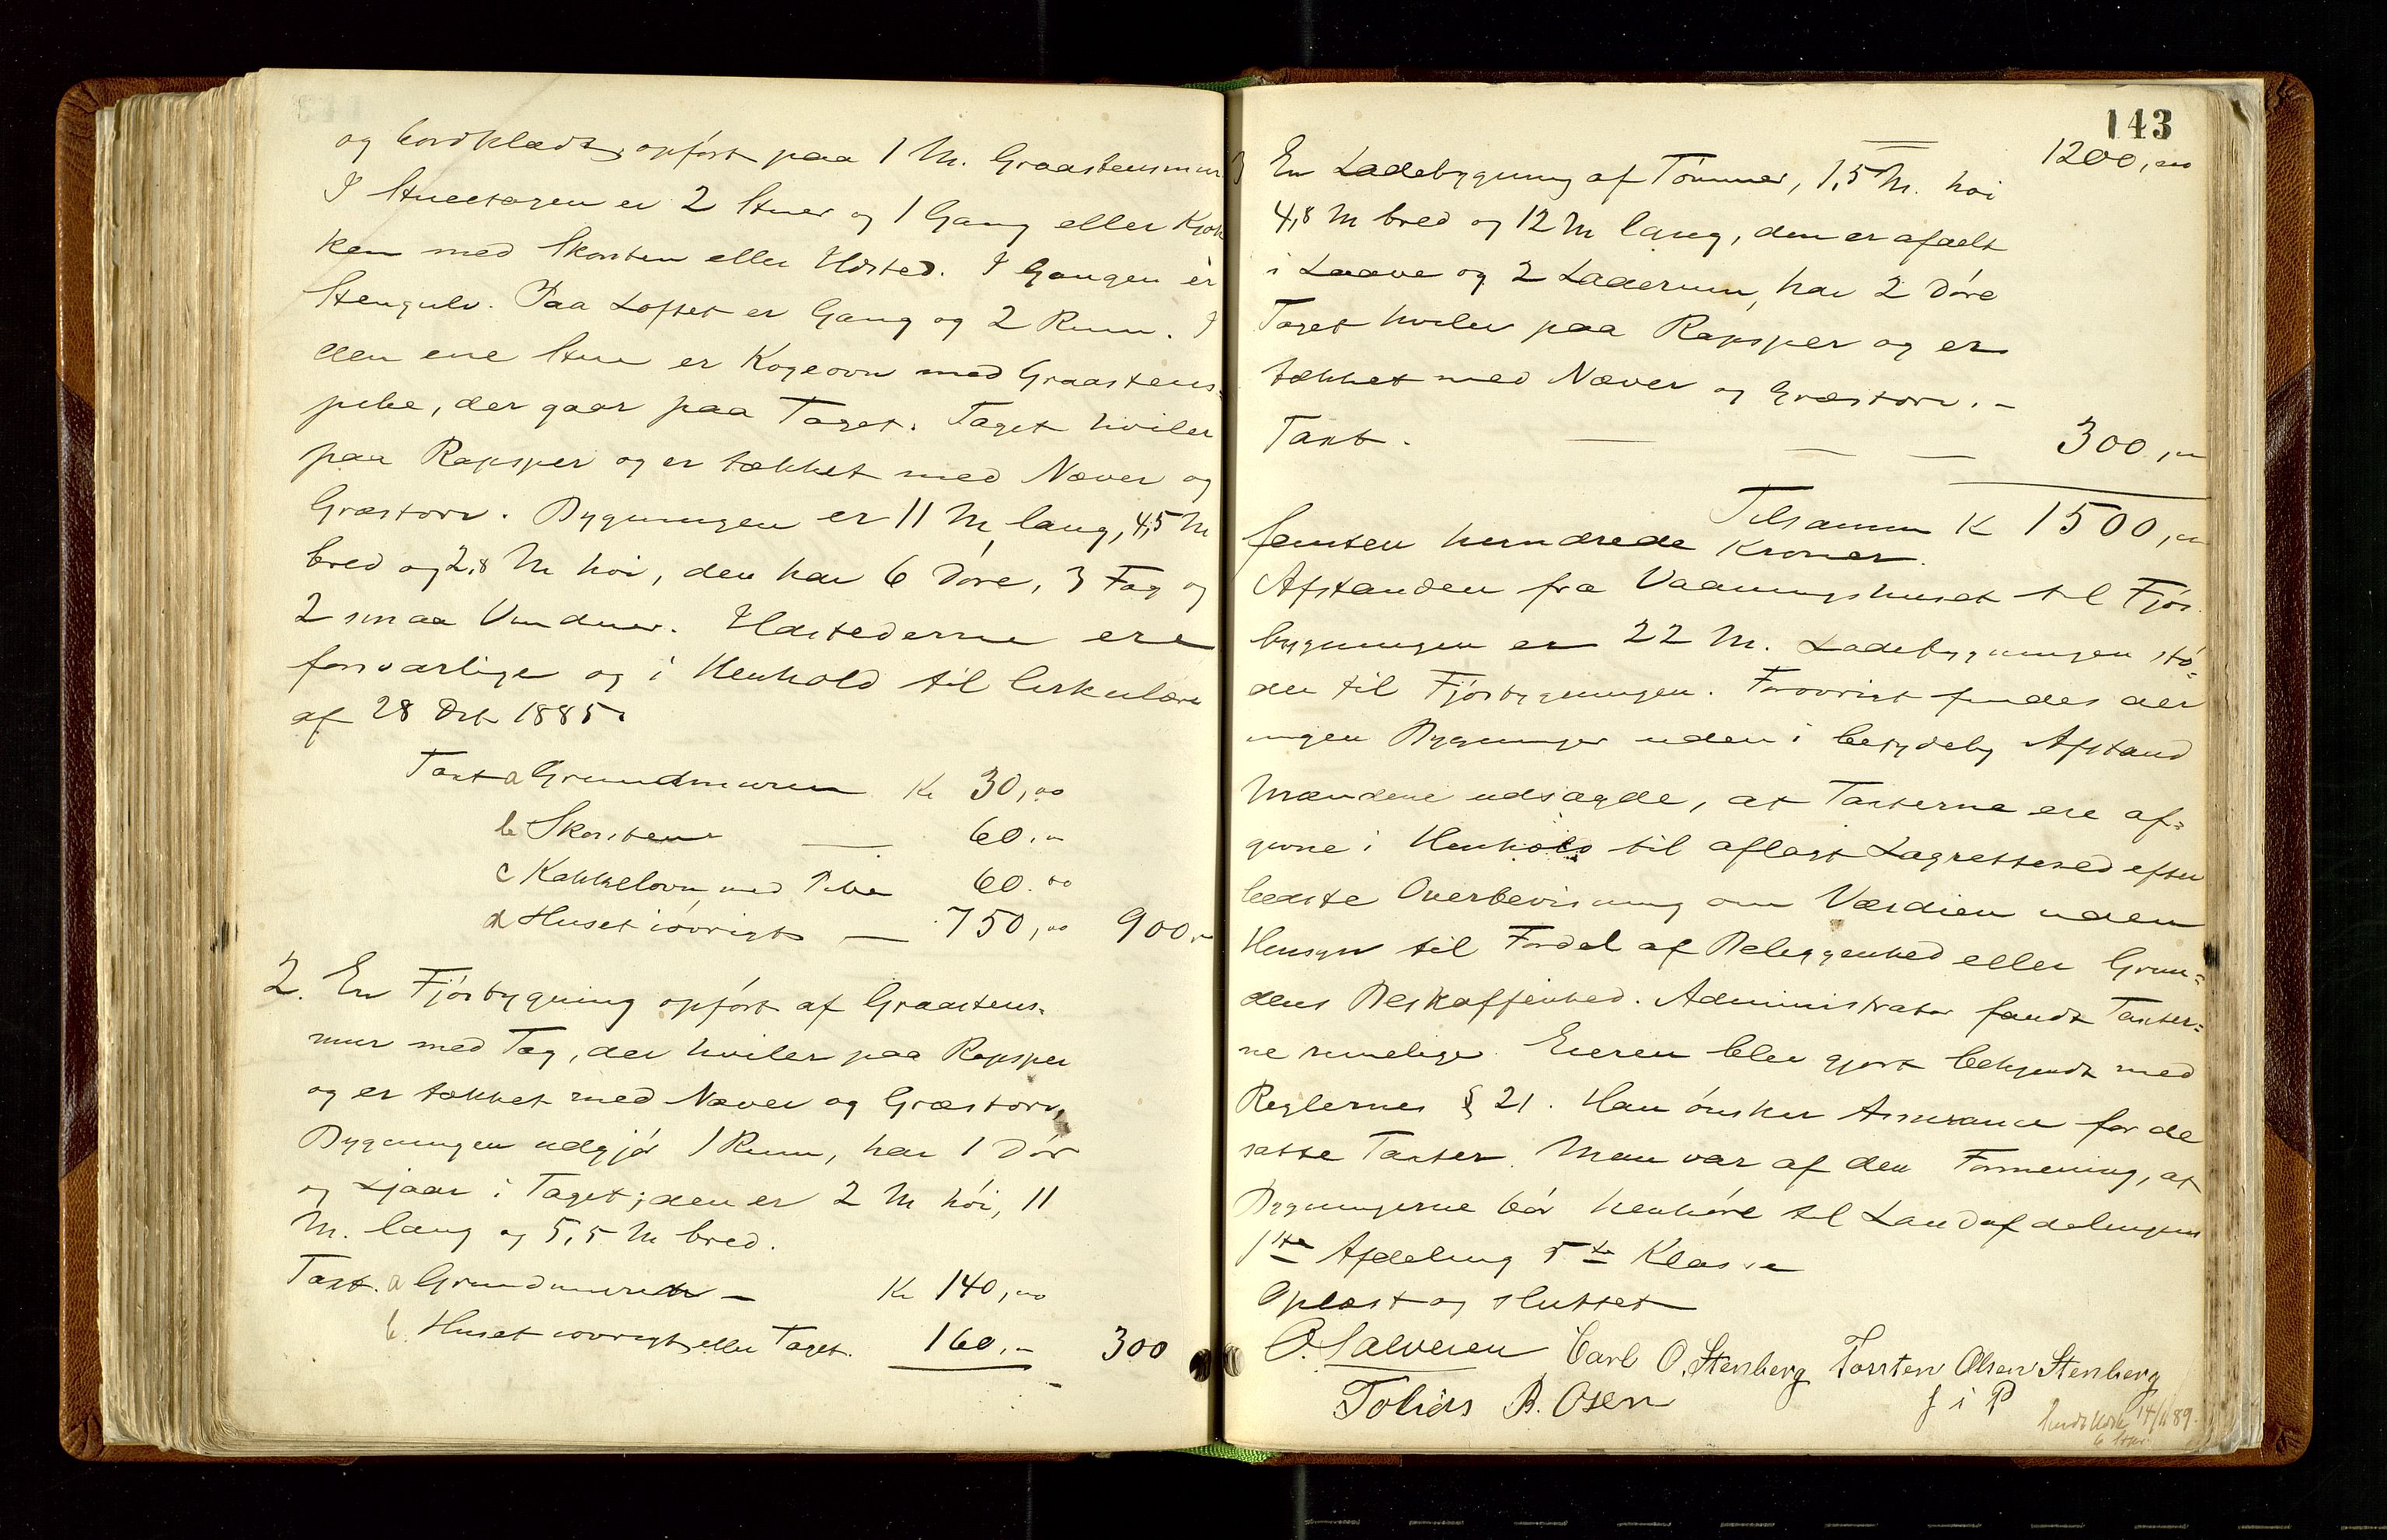 og bordklædt, opført paa 1 M. Graastensmur
I Stueetagen er 2 Stuer og 1 Gang eller Kjøk
ken med Skorsten eller Ildsted. I Gangen er
Stengulv. Paa Loftet er Gang og 2 Rum. I
den ene Stue er Kogeovn med Graastens-
pibe, der gaar paa Taget. Taget hviler
paa Rapsper og er tækket med Næver og
Græstorv. Bygningen er 11 M lang, 4,5 M
bred og 2,8 M høi, den har 6 Døre, 3 Fag og
2 smaa Vinduer. Ildstederne ere
forsvarlige og i Henhold til Cirkulære
af 28 Oct 1885.
Taxt a Grundmuren Kr 30,00
b Skorsten — 60,00
c Kakkelovn med Pibe 60.00
d Huset iøvrigt — 750,00 900,00
2. En Fjøsbygning opført af Graastens-
mur med Tag, der hviler paa Rapsper
og er tækket med Næver og Græstorv,
Bygningen udgjør 1 Rum, har 1 Dør
og Ljaar i Taget; den er 2 M høi, 11
M. lang og 5,5 M bred.
Taxt. a Grundmuren — Kr 140,00
b. Huset iøvrigt eller Taget. 160,- 300
143
1200,00
3 En Ladebygning af Tømmer, 1,5 M. høi
4,8 M bred og 12 M lang, den er afdelt
i Laave og 2 Laderum, har 2 Døre
Taget hviler paa Rapsper og er
tækket med Næver og Græstorv. -
Taxt. — — — 300,00
Tilsammen K 1500,00
femten hundrede Kroner.
Afstanden fra Vaaningshuset til Fjøs-
bygningen er 22 M. Ladebygningen stø-
der til Fjøsbygningen. Forøvrigt findes der
ingen Bygninger uden i betydelig Afstand
Mændene udsagde, at Taxterne ere af-
givne i Henhold til aflagt Lagretteed efter
bedste Overbevisning om Værdien uden
Hensyn til Fordel af Beliggenhed eller Grun-
dens Beskaffenhed. Administrator fandt Taxter-
ne rimelige. Eieren blev gjort bekjendt med
Reglernes § 21. Han ønsker Assurance for de
satte Taxter. Man var af den Formening, at
Bygningerne bør henhøre til Landafdelingens
1ste Afdeling 5te Klasse
Oplæst og sluttet
O. Salvesen Carl O. Stenberg Torsten Olsen Stenberg
Tobias B. Osen f i P
14/11 89.